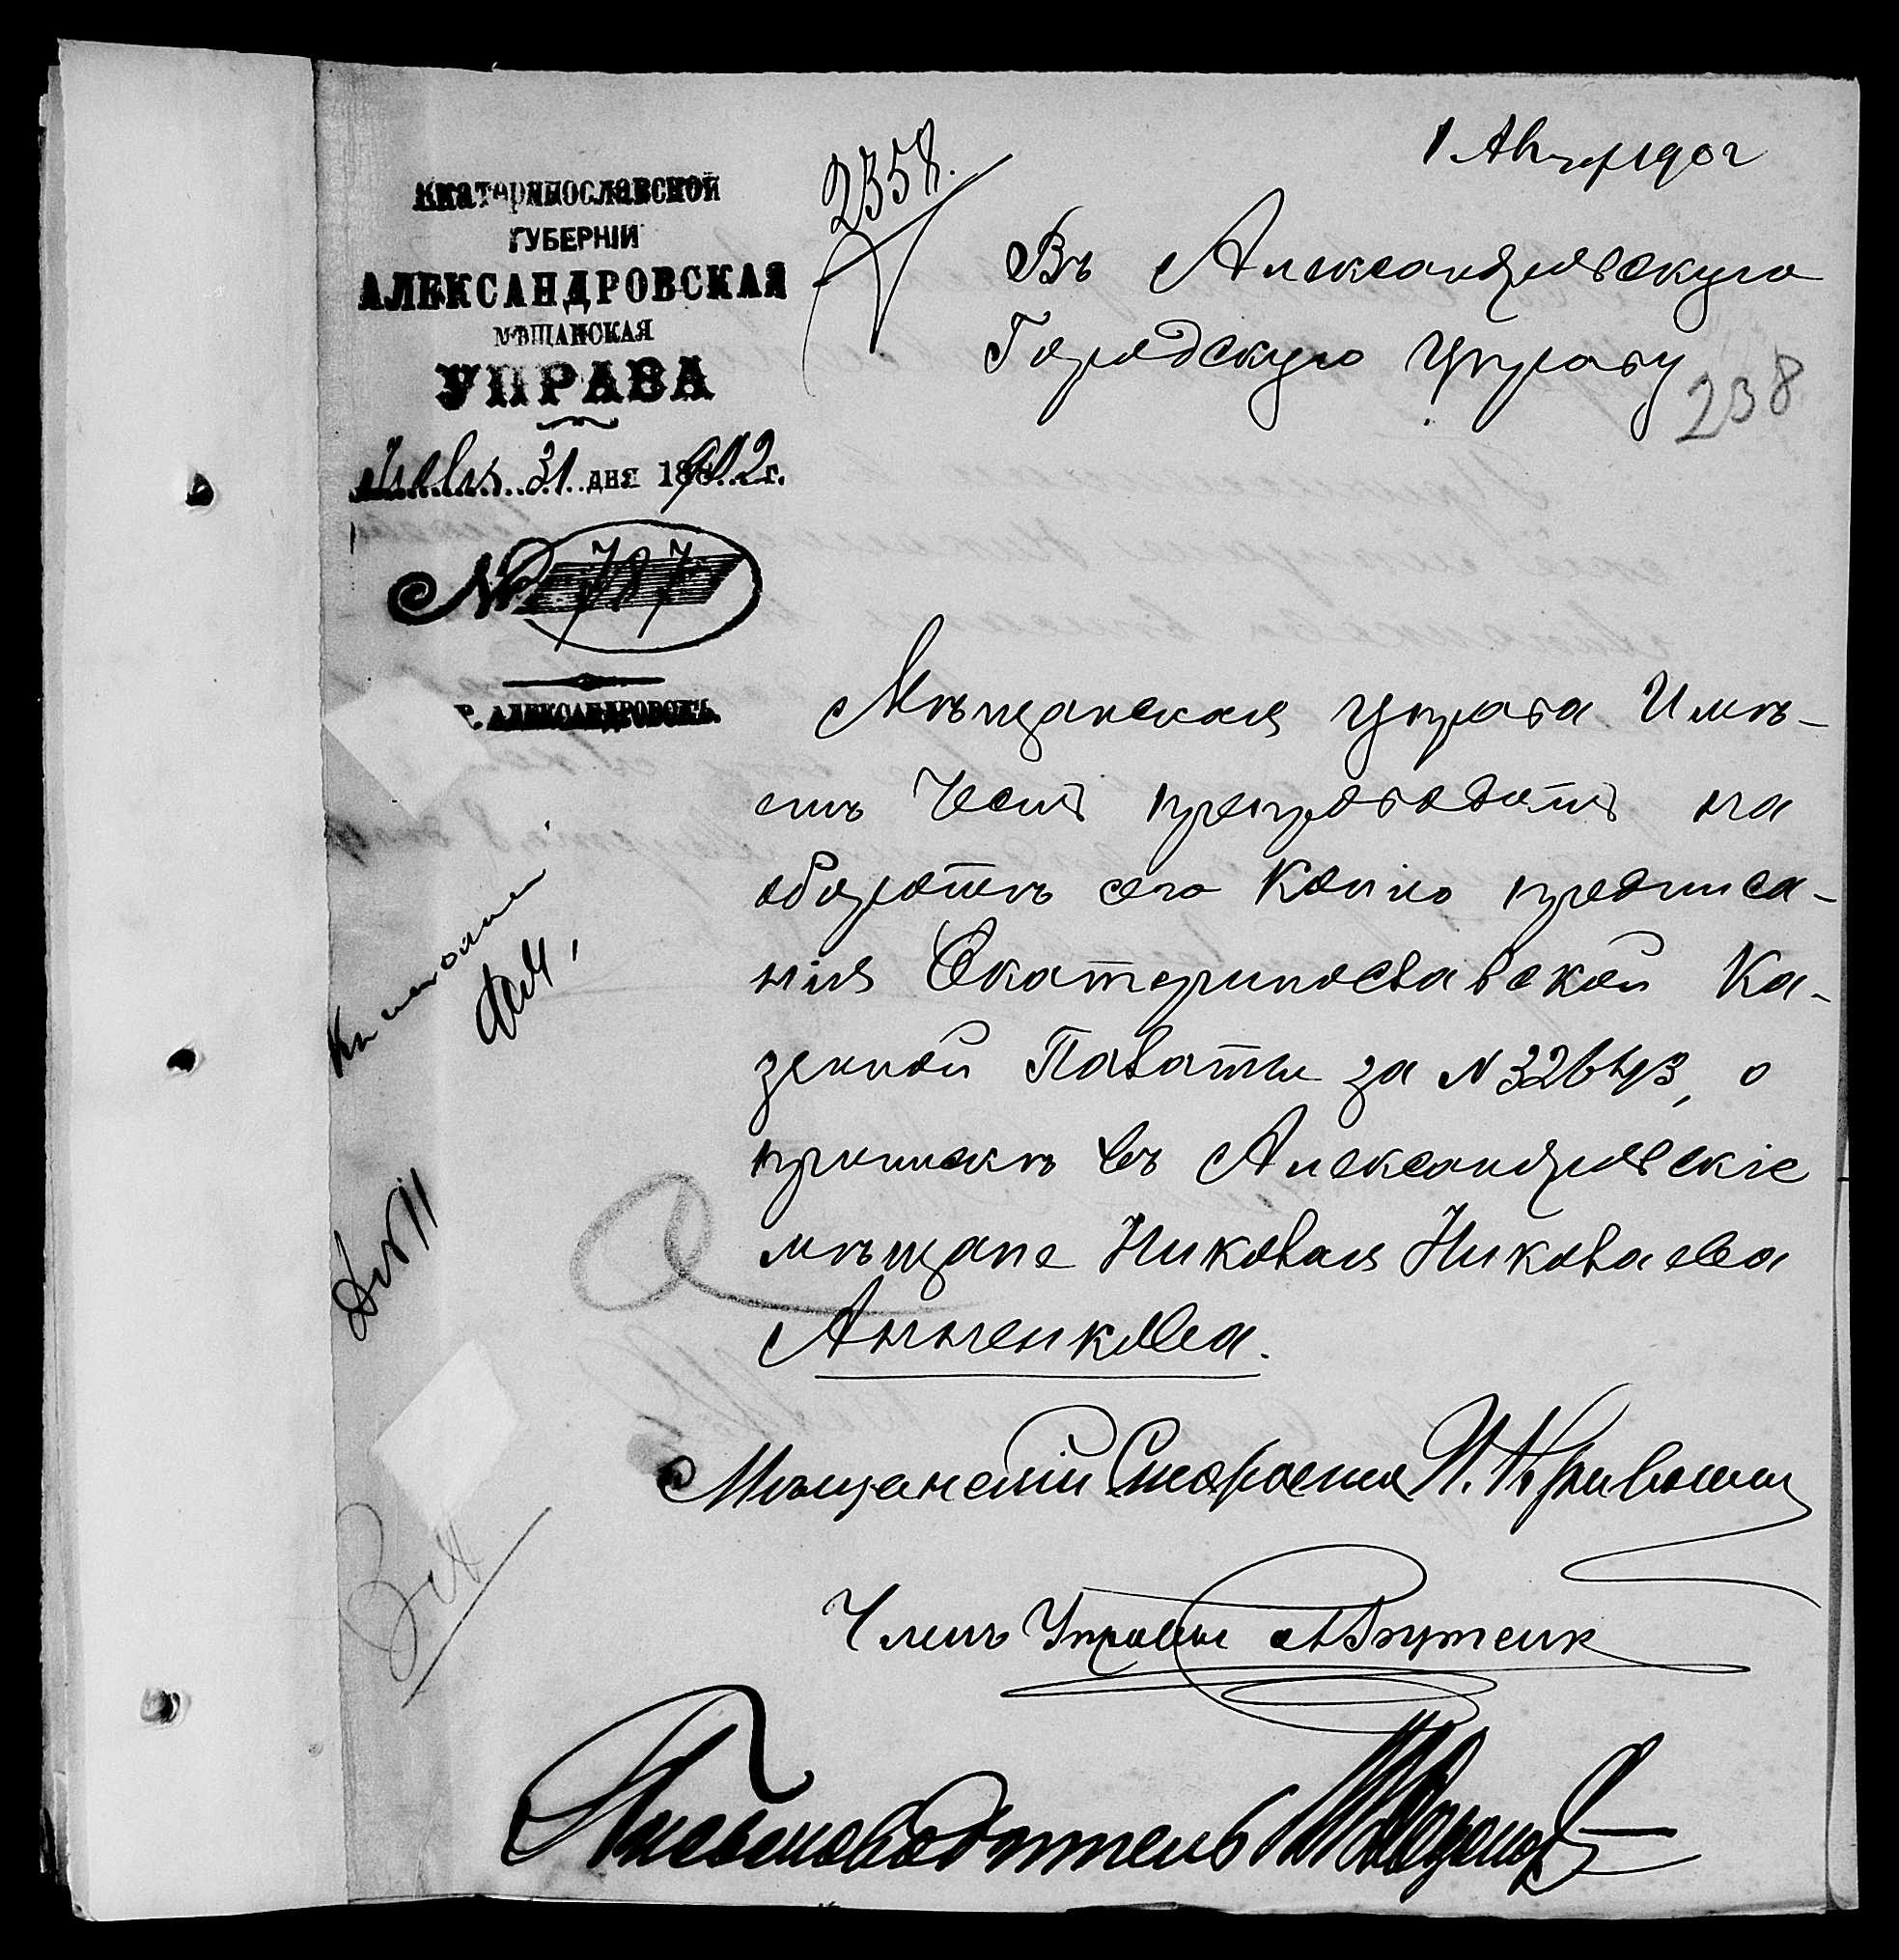 1 Авг. 1902
2358.
Екатеринославской
ГУБЕРНІИ
АЛЕКСАНДРОВСКАЯ
МѢЩАНСКАЯ
УПРАВА
Іюля 31 дня 1902 г.
№ 787
Г. АЛЕКСАНДРОВСКЪ.
Въ Александровскую
Городскую Управу
238
Мѣщанская Управа Имѣ-
етъ Честь препроводить на
оборотѣ сего Копію предписа-
нія Екатеринославской Ка-
зенной Палаты за N 32643, о
припискѣ въ Александровскіе
мѣщане Николая Николаева
Анненкова.
Мѣщанскій Староста П. Кривошея
Членъ Управы
Письмоводитель